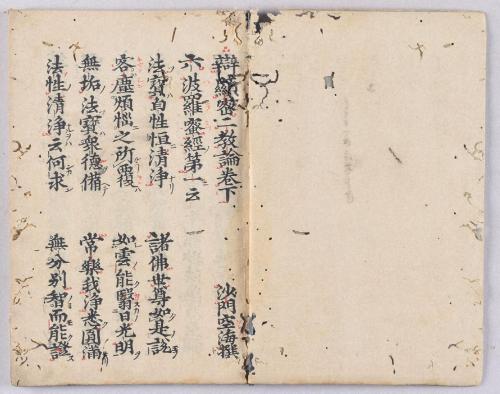 辯顯密二教論卷下　沙門空海撰
六波羅蜜經第一云
法寶自性恒清淨　諸佛世尊如是説
客塵煩惱之所覆　如雲能翳日光明
無垢法寶衆德備　常樂我淨悉圓滿
法性清淨云何求　無分別智而能證